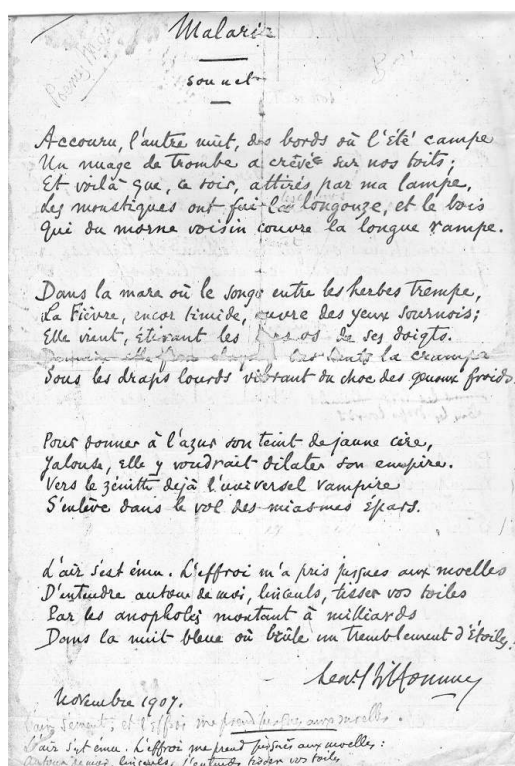 Poems
Malaria
Sonnet
Accouru, l'autre nuit, des bords où l'Été campe
Un nuage de trombe a crêvé sur nos toits;
Et voilà que, ce soir, attirés par ma lampe,
Les moustiques ont fui la longouze, et le bois
Qui du morne voisin couvre la longue rampe.
Dans la mare où le songe entre les herbes trempe,
La Fièvre, encor timide, ouvre des yeux sournois;
Elle vient, étirant les os de ses doigts.
Demain elle la crampe
Sous les draps lourds vibrant du choc des genoux froids.
Pour donner à l'azur son teint de jaune cire,
Jalouse, elle y voudrait dilater son empire.
Vers le zénith déjà l'universel vampire
S'enlève dans le vol des miasmes épars.
L'air s'est ému. L'effroi m'a pris jusques aux moelles
D'entendre autour de moi, linceuls, tisser vos toiles
Par les anophelès montant à milliards
Dans la nuit bleue où brûle un tremblement d'Étoiles.
Novembre 1907.
L'air s'ément; et l'effroi me prend jusques aux moelles.
L'air s'est ému. L'effroi me prend jusques aux moelles:
Autour de moi, linceuls, j'entends tisser vos toiles